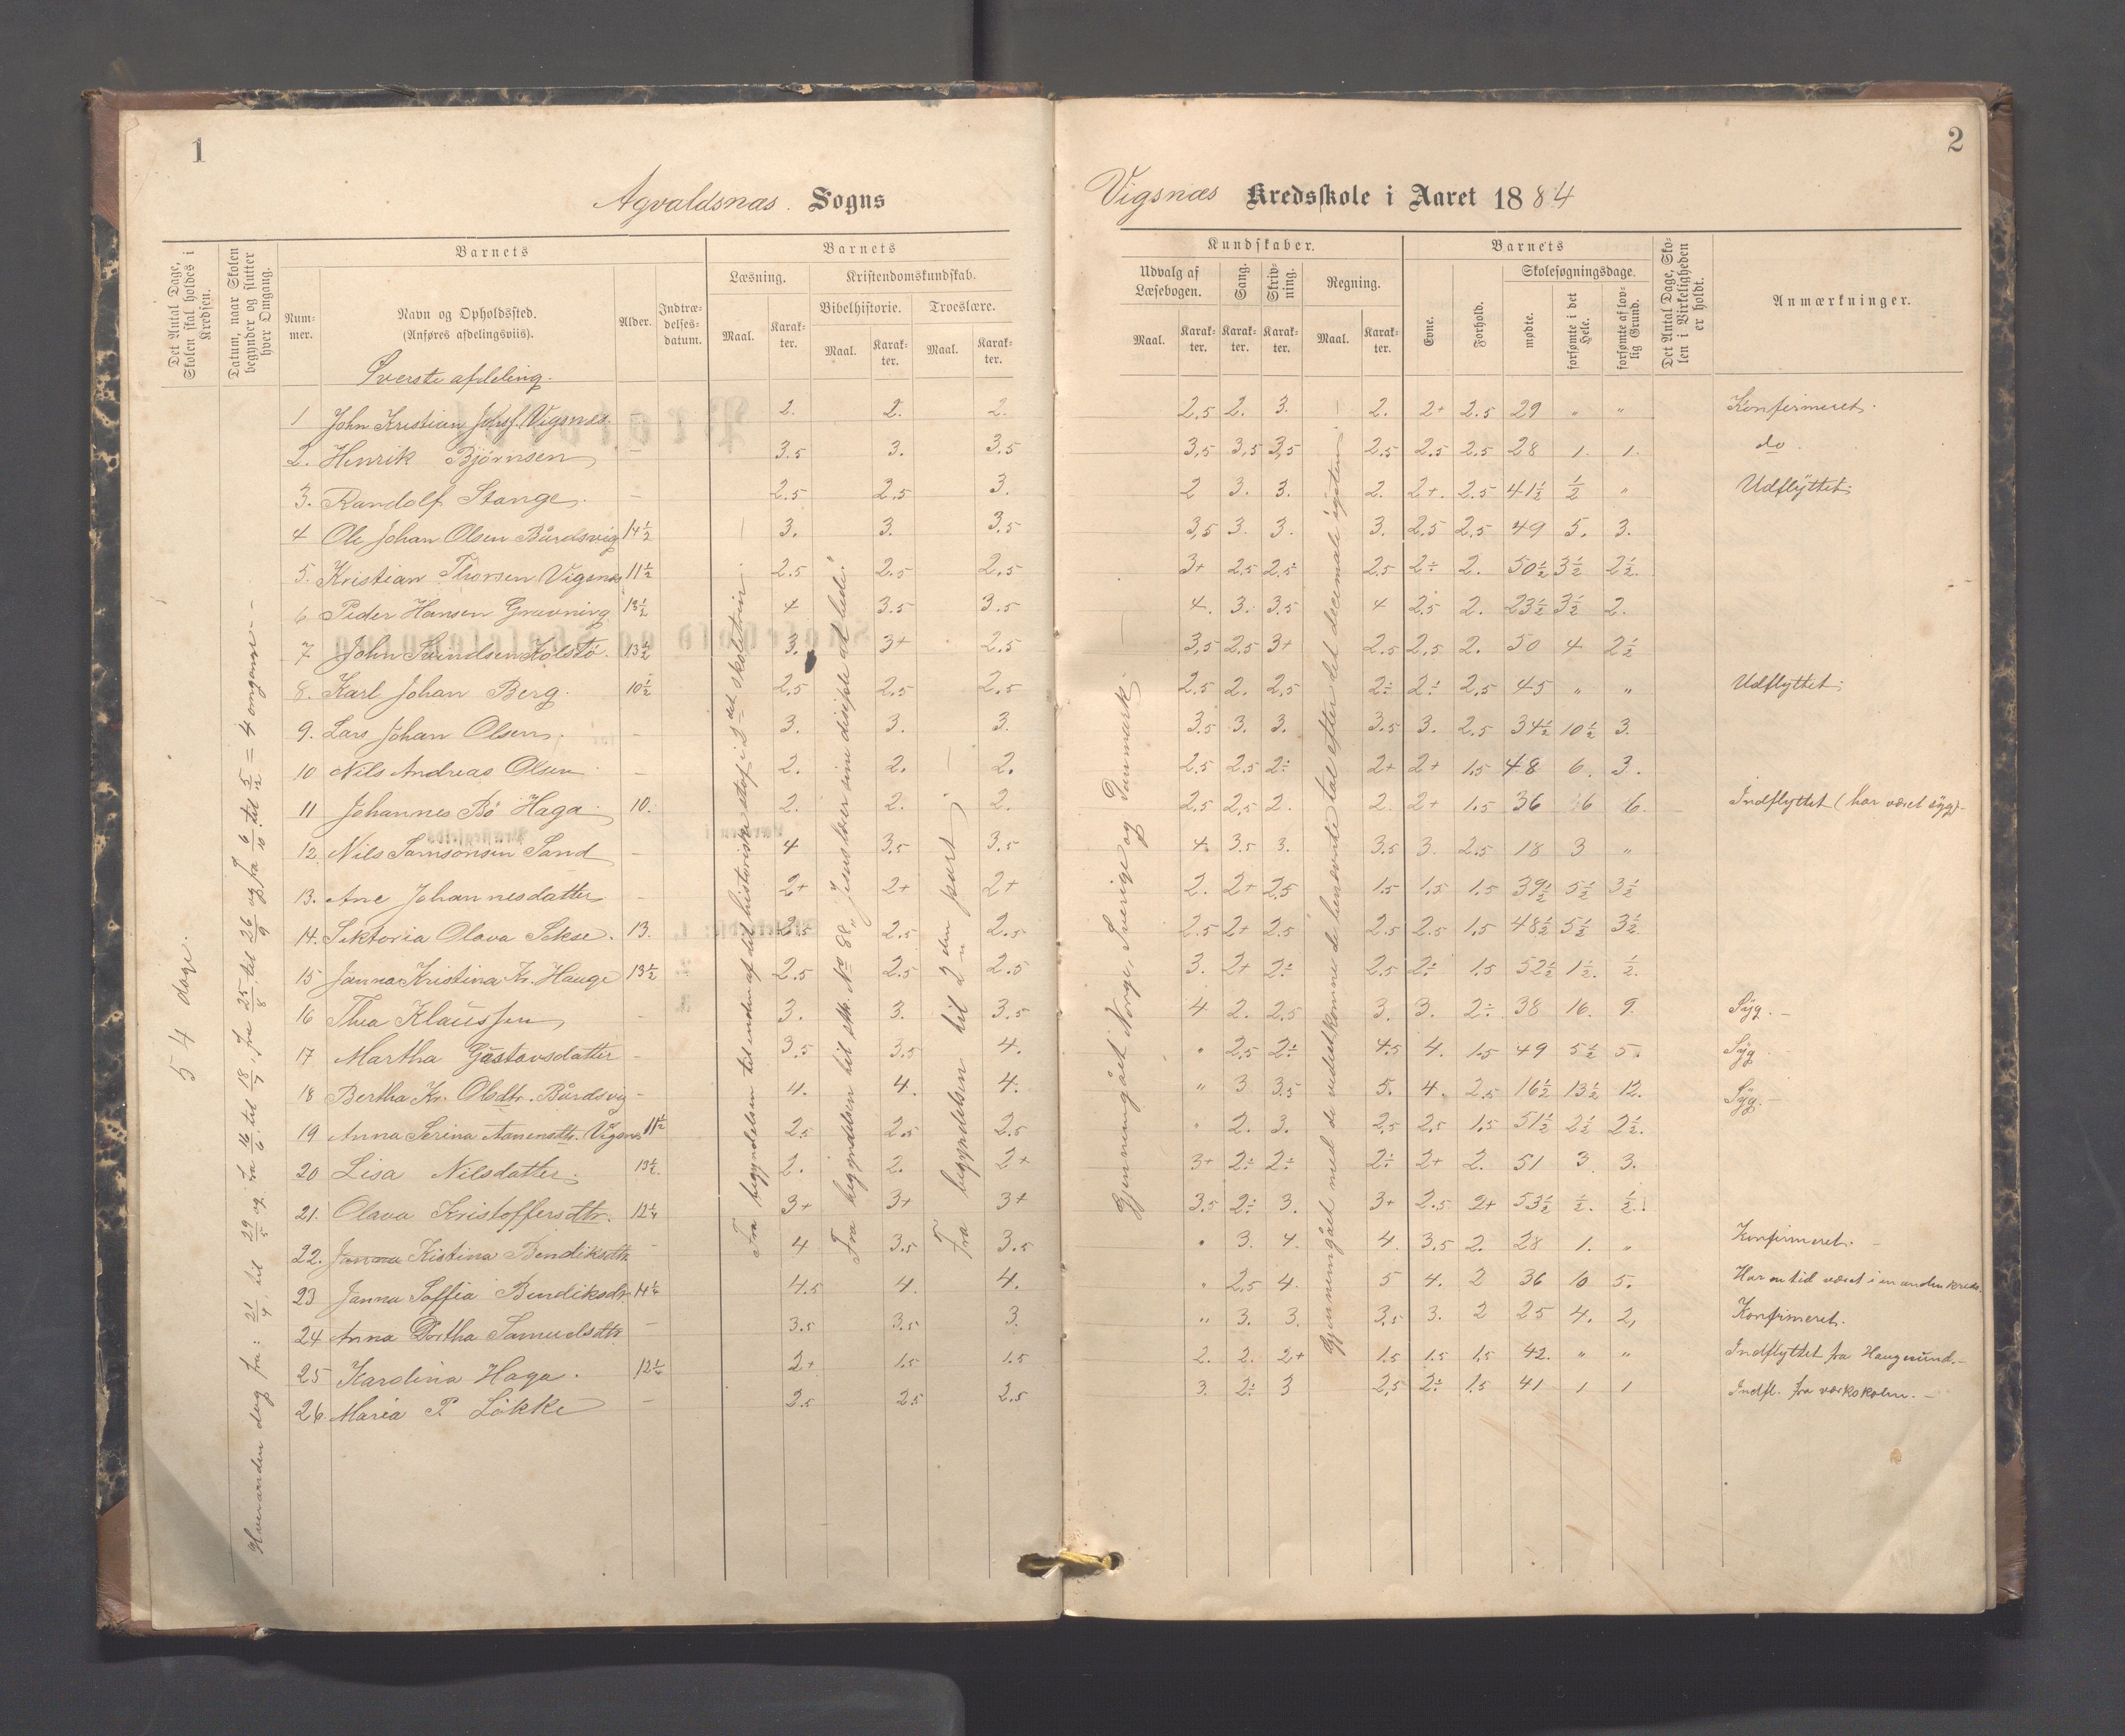 1
Agvaldsnæs. Sogns
Det Antal Dage, Skolen skal holdes i Kredsen.
Datum, naar Skolen begynder og slutter hver Omgang.
Barnets
Barnets
Num-mer.
Navn og Opholdssted.
(Anføres afdelingsviis).
Alder.
Indtræ-delses-datum.
Læsning.
Kristendomskundskab.
Bibelhistorie.
Troeslære.
Maal. Karak-ter. Maal. Karak-ter. Maal. Karak-ter.
Øverste afdeling.
1 John Kristian Johs. Vigsnes. – 2. 2. 2.
2. Henrik Bjørnsen – 3.5 3. 3.5
3. Randolf Stange. – 2.5 2.5 3.
4 Ole Johan Olsen Bårdsvig 14½ 3. 3. 3.5
5. Kristian Thorsen Vigsnæs 11½ 2.5 2.5 2.5
6 Peder Hansen Gravning 13½ 4 3.5 3.5
7 John Kolstö. 13½ 3. 3+ 2.5
8. Karl Johan Berg. 10½ 2.5 2.5 2.5
9. Lars Johan Olsen. – 3. 3. 3.
10 Nils Andreas Olsen – 2. 2. 2.
11 Johannes Bö Haga 10. 2. 2. 2.
12. Nils Samsonsen Sand – 4 3.5 3.5
13. Ane Johannesdatter – 2+ 2+ 2+
14. Olava Sekse. 13. 2.5 2.5 2.5
15 Janna Kristina Kr. Hauge 13½ 2.5 2.5 2.5
16 Thea Klaussen – 3. 3. 3.5
17 Martha Gustavsdatter – 3.5 3.5 4.
18 Bertha Kr. Olsdtr. Bårdsvig – 4. 4. 4.
19 Anna Serina Vigsnes 11½ 2.5 2.5 2.5
20 Lisa Nilsdatter. 13½. 2. 2. 2+
21. Olava Kristoffersdtr. 12¼ 3+ 3+ 3+
22. Janna Kistina Bendiksdtr. – 4 3.5 3.5
23 Janna Soffia Bendiksdr. 14¼ 4.5 4. 4.
24 Anna Dortha Samuelsdtr – 3.5 3.5 3.
25 Karolina Haga. 12¼ 2+ 1.5 1.5
26. Maria P. Lökke – 2.5 2.5 2.5
54 dage.
Hveranden dag fra: 21/4 til 29/5 og fra 16/6 til 18/7, fra 25/8 til 26/9 og fra 6/10 til 5/12 = 4 omgange –
Fra begyndelsen til enden af det historiske stof i 2det skoletrin.
Fra begyndelsen til stk. No 88 „Jesus lærer sine disiple at bede."
Fra begyndelsen til 2den part
2
Vigsnæs Kredsskole i Aaret 1884
Kundskaber.
Barnets
Udvalg af Læsebogen.
Sang.
Skriv-ning.
Regning.
Evne.
Forhold.
Skolesøgningsdage.
mødte.
forsømte i det Hele.
forsømte af lov-lig Grund.
Det Antal Dage, Sko-len i Virkeligheden er holdt.
Anmærkninger.
Maal. Karak-ter. Karak-ter. Karak-ter. Maal. Karak-ter.
2.5 2. 3. 2. 2+ 2.5 29 „ „ Konfirmeret.
3,5 3,5 3,5 2.5 2.5 2.5 28 1. 1. do.
2 3. 3. 2. 2+. 2.5 41½ ½ „ Udflyttet.
3,5 3. 3. 3. 2.5 2.5 49 5. 3.
3+ 2.5 2.5 2.5 2÷ 2. 50½ 3½ 2½.
4. 3. 3.5 4 2.5 2. 23½ 3½ 2.
3,5 2.5 3+ 2.5 2,5 2. 50 4 2½
2.5 2. 2.5 2÷ 2÷ 2.5 45 „ „ Udflyttet.
3.5 3. 3. 3.5 3. 2.5 34½ 10½ 3.
2.5 2.5 2÷ 2+ 2+ 1.5 48 6. 3.
2.5 2,5 2. 2. 2+ 1.5 36 16 6. Indflyttet (har været syg).
4. 3.5 3. 3.5 3. 2.5 18 3 „
2. 2+ 2.5 1.5 1.5 1.5 39½ 5½ 3½
2.5 2+ 2.5 2.5 2.5 1.5 48½ 5½ 3½
3. 2+ 2÷ 2.5 2÷ 1.5 52½ 1½. ½.
4 2. 2.5 3. 3. 2÷ 38 16. 9. Syg. –
„ 2.5 2÷ 4.5 4. 1.5 49 5½ 5. Syg
„ 3 3.5 5. 4. 2.5 16½ 13½ 12. Syg. –
„ 2. 3. 2.5 2.5 1.5 51½ 2½ 2½.
3+ 2÷ 2÷ 2÷ 2+ 2. 51 3 3.
3.5 2÷ 3. 3+ 2.5 2+ 53½ ½. ½.
„ 3. 4. 4. 3.5 2. 28 1. „ Konfirmeret. –
„ 2.5 4. 5 4. 2 36 10 5. Har en tid været i en anden kreds.
„ 3. 3. 3.5 3. 2 25 4. 2, Konfirmeret.
2. 2. 2+ 1.5 1.5 1.5 42. „ „ Indflyttet fra Haugesund. –
3. 2÷ 3 2.5 2÷ 1.5 41 1 1 Indfl. fra værkskolen. –
Gjennemgået Norge, Sverige og Danmark.
Gjennemgået med de vedkommende benævnte tal efter det decimale system.